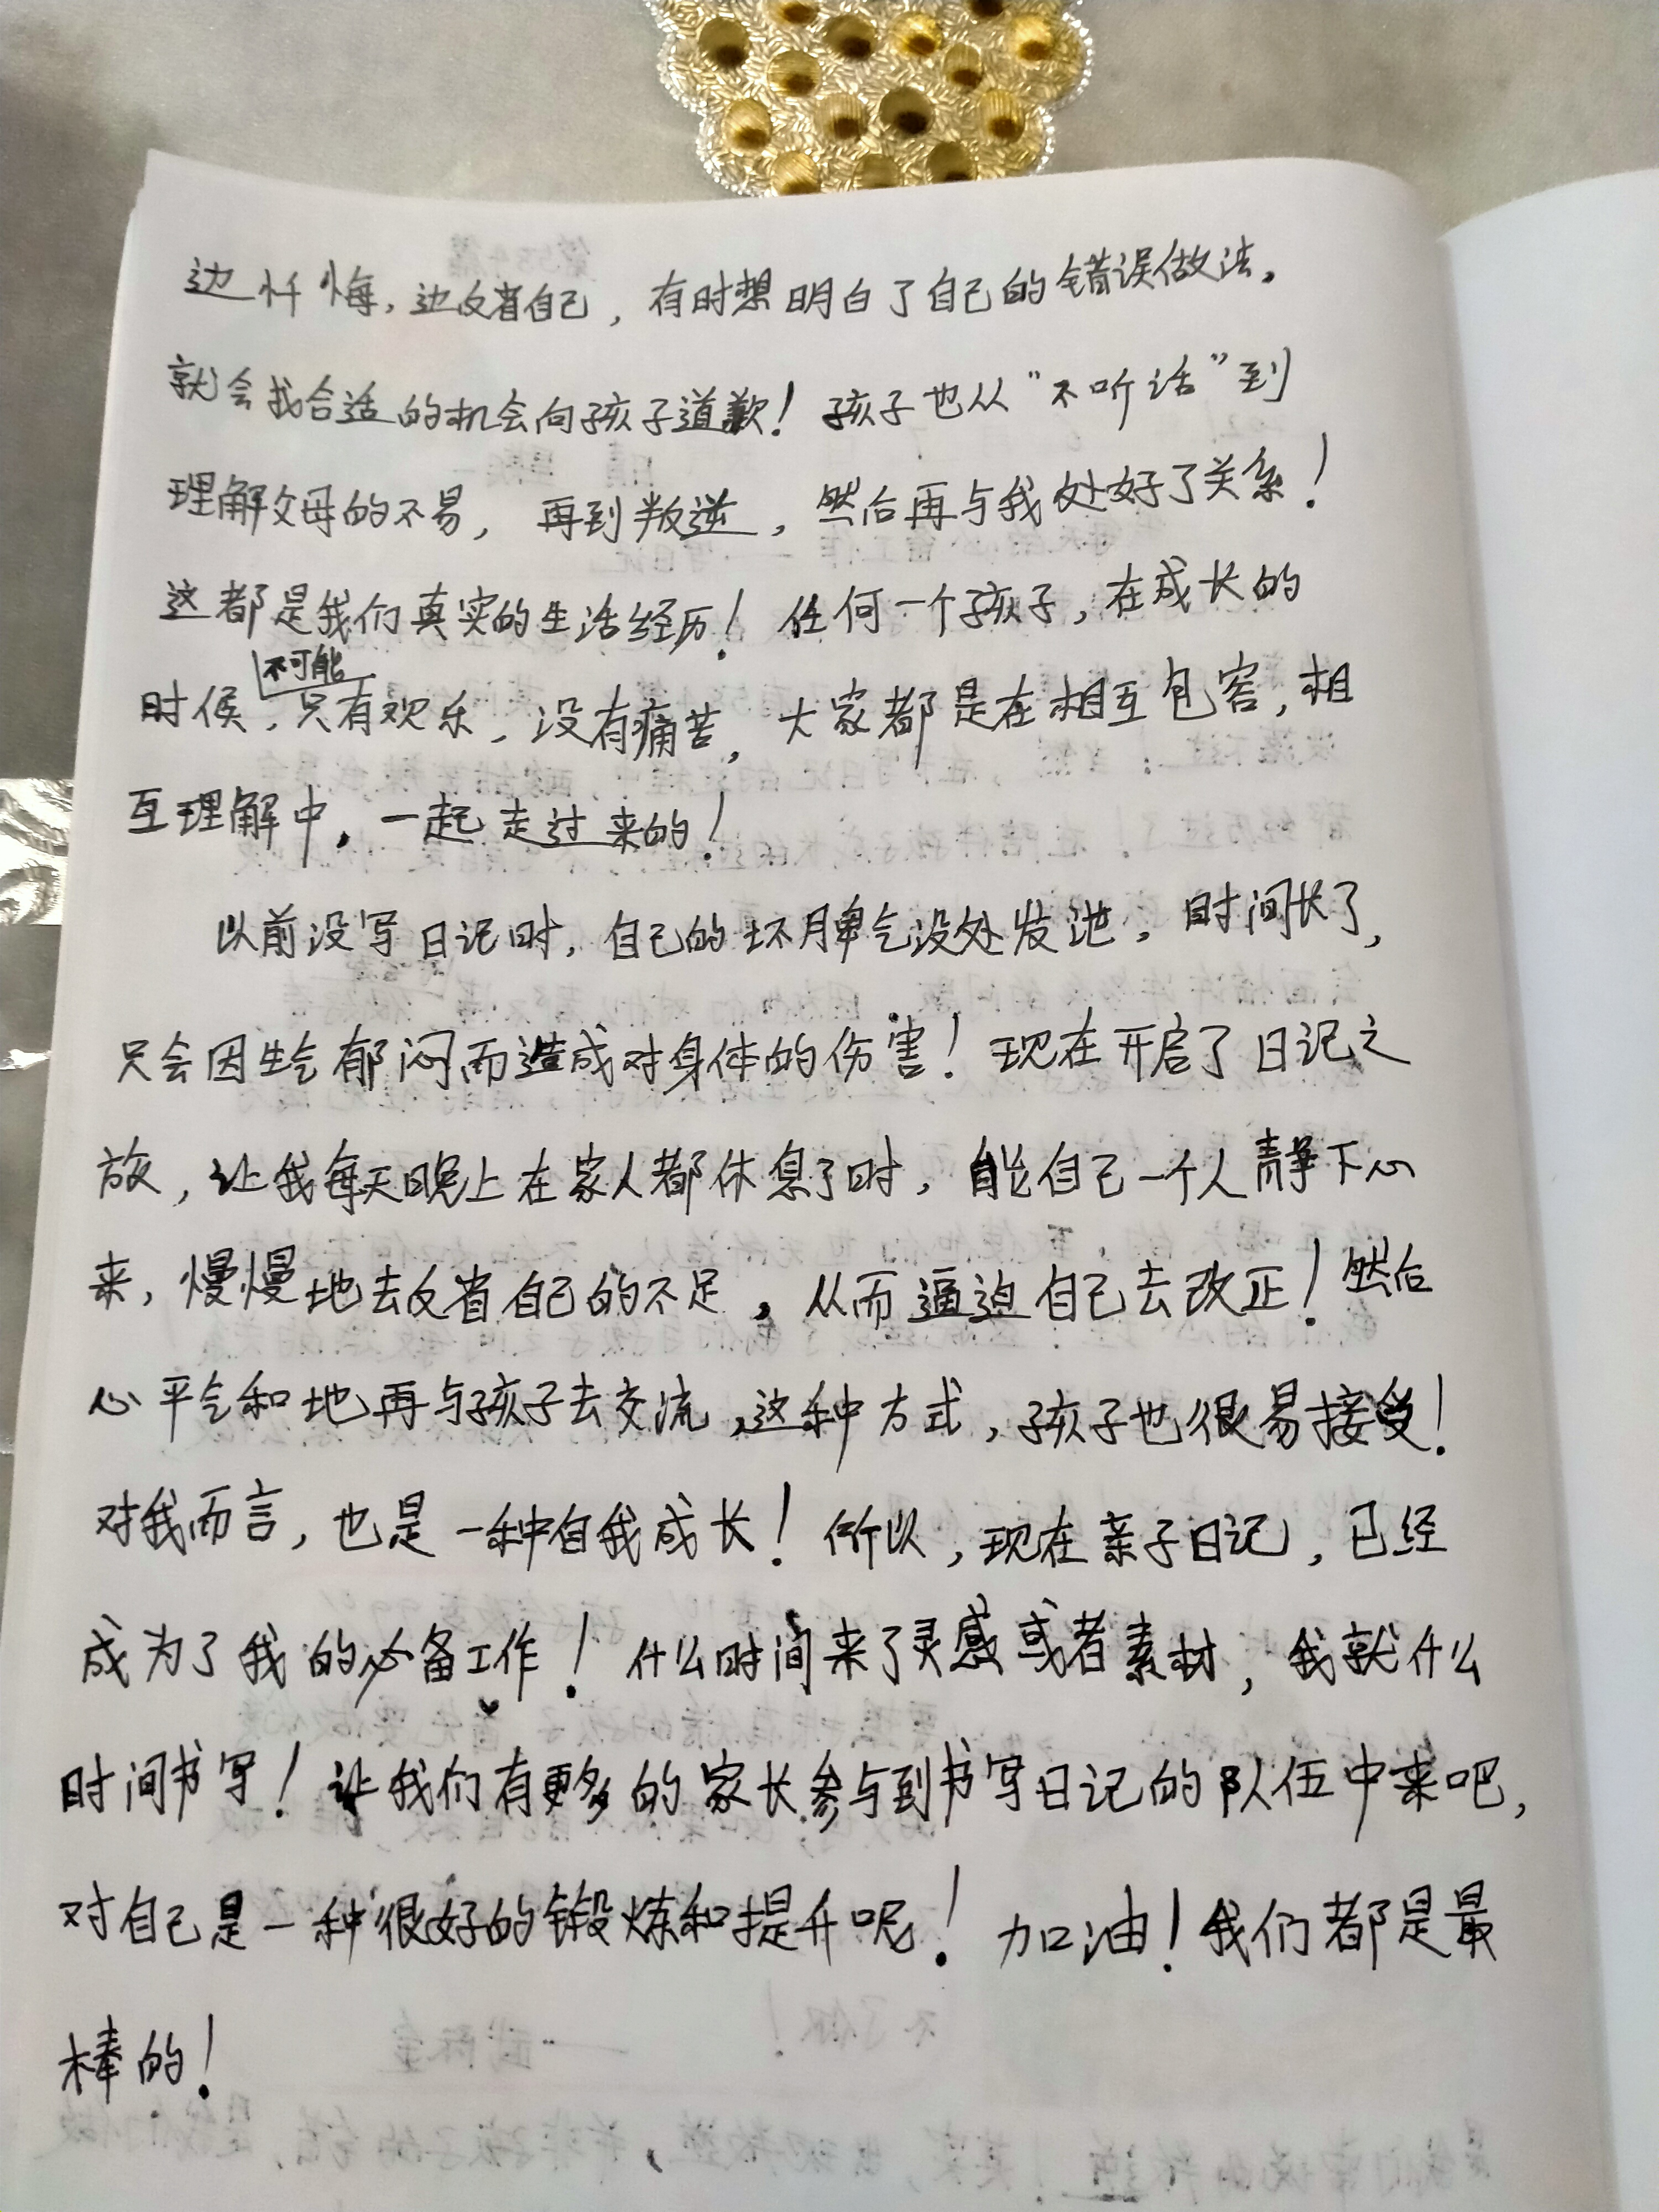 边忏悔，边反省自己，有时想明白了自己的错误做法。
就会找合适的机会向孩子道歉！孩子也从“不听话”到
理解父母的不易，再到叛逆，然后再与我处好了关系！
这都是我们真实的生活经历！任何一个孩子，在成长的
不可能
时候，只有欢乐，没有痛苦，大家都是在相互包容，相
互理解中，一起走过来的！
以前没写日记时，自己的坏脾气没处发泄，时间长了，
只会因生气郁闷而造成对身体的伤害！现在开启了日记之
旅，让我每天晚上在家人都休息了时，能自己一个人静下心
来，慢慢地去反省自己的不足，从而逼迫自己去改正！然后
心平气和地再与孩子去交流，这种方式，孩子也很易接受！
对我而言，也是一种自我成长！所以，现在亲子日记，已经
成为了我的必备工作！什么时间来了灵感或者素材，我就什么
时间书写！让我们有更多的家长参与到书写日记的队伍中来吧，
对自己是一种很好的锻炼和提升呢！加油！我们都是最
棒的！